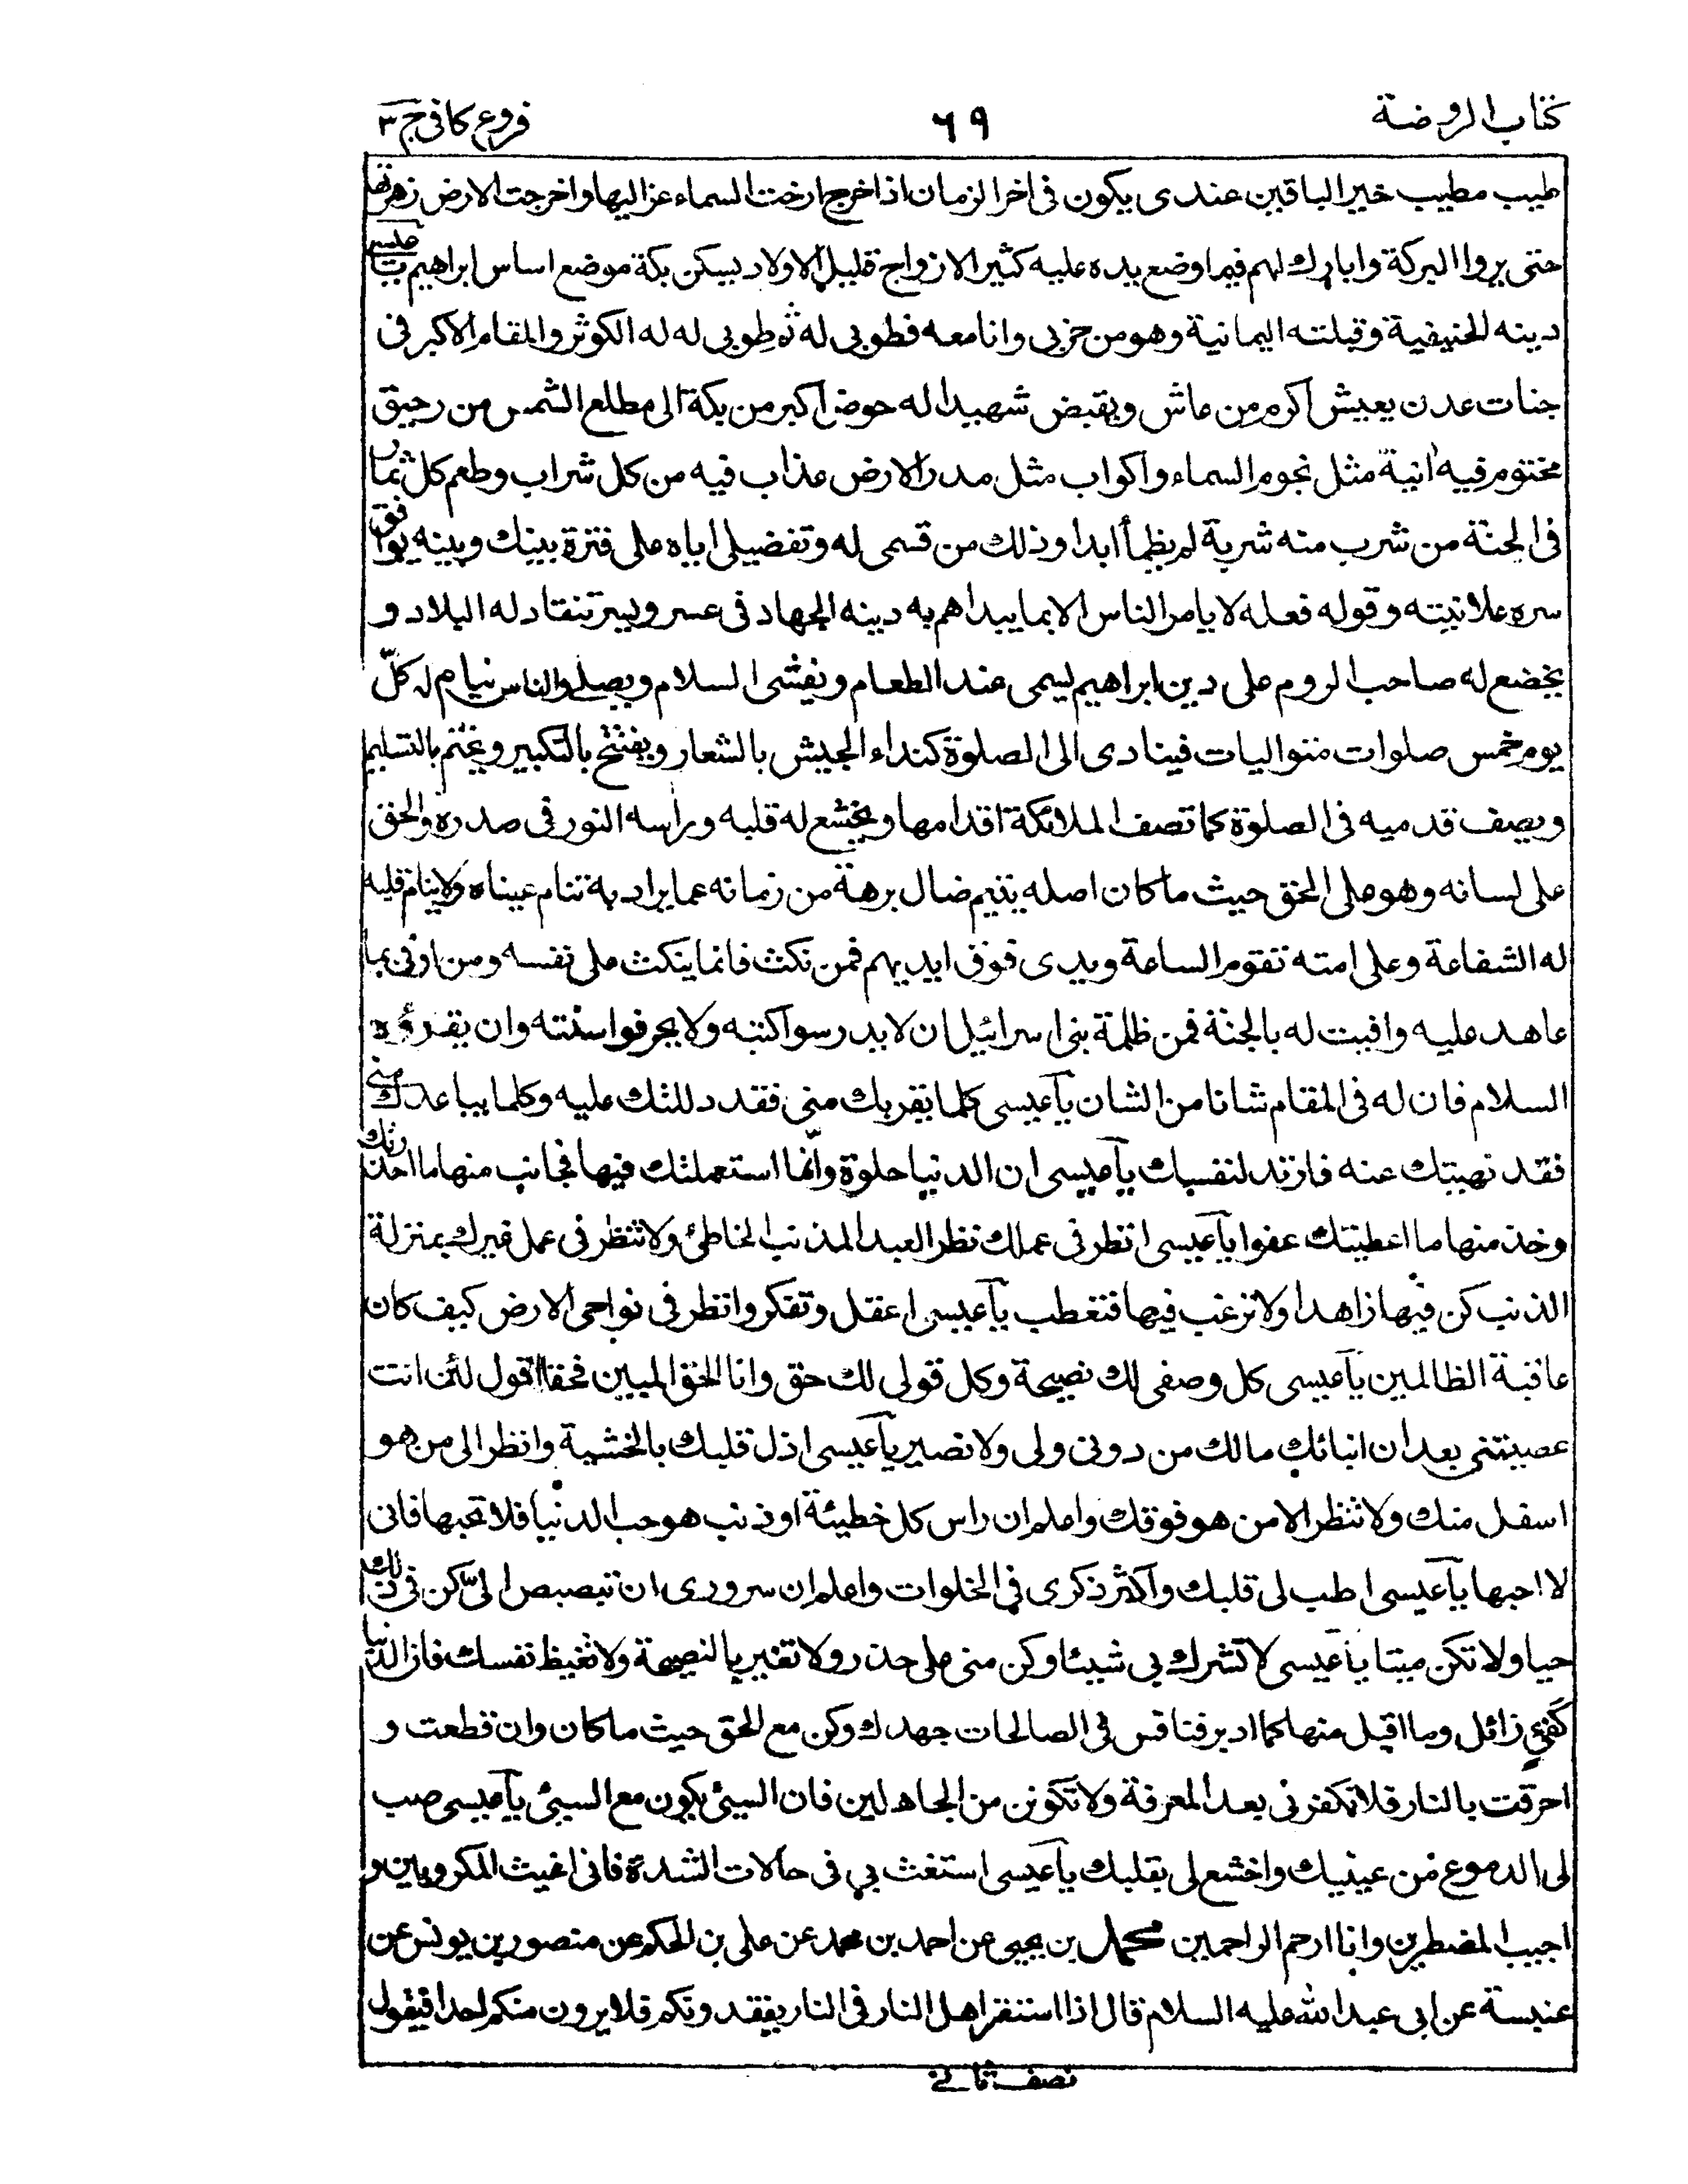 كتاب الروضة
٦٩
فروع كافى ج ٣
طيب مطيب خير الباقين عندى يكون فى اخر الزمان اذا خرج ارخت السماء عزاليها واخرجت الارض زهرتها
حتى يروا البركة وابارك لهم فيما وضع يده عليه كثير الازواج قليل الاولاد يسكن بكة موضع اساس ابراهيم يا عيسى
دينه الحنيفية وقبلته اليمانية وهو من حزبى وانا معه فطوبى له ثم طوبى له له الكوثر والمقام الاكبر فى
جنات عدن يعيش اكرم من عاش ويقبض شهيدا له حوض اكبر من بكة الى مطلع الشمس من رحيق
مختوم فيه انية مثل نجوم السماء واكواب مثل مدر الارض عذاب فيه من كل شراب وطعم كل ثمار
فى الجنة من شرب منه شربة لم يظمأ ابدا وذلك من قسمى له وتفضيلى اياه على فترة بينك وبينه يوافق
سره علانيته وقوله فعله لا يامر الناس الا بما يبداهم به دينه الجهاد فى عسر ويسر تنقاد له البلاد و
يخضع له صاحب الروم على دين ابراهيم يسمى عند الطعام ويفشى السلام ويصلى والناس نيام له كلّ
يوم خمس صلوات متواليات فينادى الى الصلوة كنداء الجيش بالشعار ويفتتح بالتكبير ويختم بالتسليم
ويصف قدميه فى الصلوة كما تصف الملائكة اقدامها ويخشع له قلبه وراسه النور فى صدره والحق
على لسانه وهو على الحق حيث ما كان اصله يتيم ضال برهة من زمانه عما يراد به تنام عيناه ولا ينام قلبه
له الشفاعة وعلى امته تقوم الساعة ويدى فوق ايديهم فمن نكث فانما ينكث على نفسه ومن اوفى بما
عاهد عليه وافيت له بالجنة فمر ظلمة بنى اسرائيل ان لا يدرسوا كتبه ولا يحرفوا سنته وان يقرؤه
السلام فان له فى المقام شانا من الشان يا عيسى كلما يقربك منى فقد دللتك عليه وكلما يباعدك منى
فقد نهيتك عنه فارتد لنفسك يا عيسى ان الدنيا حلوة وانّما استعملتك فيها فجانب منها ما احذرتك
وخذ منها ما اعطيتك عفوا يا عيسى انظر فى عملك نظر العبد المذنب الخاطئ ولا تنظر فى عمل غيرك بمنزلة
الذنب كن فيها زاهدا ولا ترغب فيها فتعطب يا عيسى اعقل وتفكر وانظر فى نواحى الارض كيف كان
عاقبة الظالمين يا عيسى كل وصفى لك نصيحة وكل قولى لك حق وانا الحق المبين فحقا اقول لئن انت
عصيتنى بعد ان انبائك مالك من دونى ولى ولا نصير يا عيسى اذل قلبك بالخشية وانظر الى من هو
اسفل منك ولا تنظر الا من هو فوقك واعلم ان راس كل خطيئة او ذنب هو حب الدنيا فلا تحبها فانى
لا احبها يا عيسى اطب لى قلبك واكثر ذكرى فى الخلوات واعلم ان سرورى ان تبصبص الىّ كن فى ذلك
حيا ولا تكن ميتا يا عيسى لا تشرك بى شيئا وكن منى على حذر ولا تغتر بالنصيحة ولا تغبط نفسك فان الدنيا
كفئ زائل وما اقبل منها كما ادبر فنافس فى الصالحات جهدك وكن مع الحق حيث ما كان وان قطعت و
احرقت بالنار فلا تكفر بى بعد المعرفة ولا تكونن من الجاهلين فان السيئ يكون مع السيئ يا عيسى صب
لى الدموع من عينيك واخشع لى بقلبك يا عيسى استغث بى فى حالات الشدة فانى اغيث المكروبين و
اجيب المضطرين وانا ارحم الراحمين محمد بن يحيى عن احمد بن محمد عن على بن الحكم عن منصور بن يونس عن
عنبسة عن ابى عبد الله عليه السلام قال اذا استقر اهل النار فى النار يفقدونكم فلا يرون منكم احدا فيقول
نصف ثانى